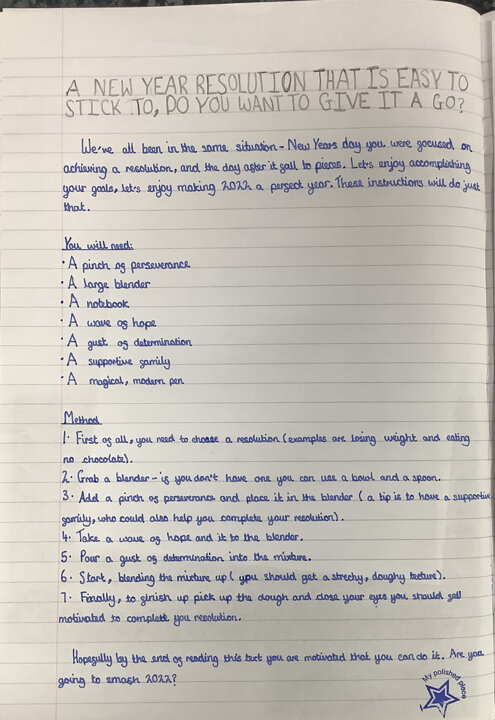 A NEW YEAR RESOLUTION THAT IS EASY TO
STICK TO, DO YOU WANT TO GIVE IT A GO?
We've all been in the same situation - New Years day you were focused on
achieving a resolution, and the day after it fall to pieces. Let's enjoy accomplishing
your goals, let's enjoy making 2022 a perfect year. These instructions will do just
that.
You will need:
· A pinch of perseverance
· A large blender
· A notebook
· A wave of hope
· A gust of determination
· A supportive family
· A magical, modern pen
Method
1. First of all, you need to choose a resolution (examples are losing weight and eating
no chocolate).
2. Grab a blender - if you don't have one you can use a bowl and a spoon.
3. Add a pinch of perseverance and place it in the blender (a tip is to have a supportive
family, who could also help you complete your resolution).
4. Take a wave of hope and it to the blender.
5. Pour a gust of determination into the mixture.
6. Start, blending the mixture up (you should get a strechy, doughy texture).
7. Finally, to finish up pick up the dough and close your eyes you should fell
motivated to complete you resolution.
Hopefully by the end of reading this text you are motivated that you can do it. Are you
going to smash 2022?
My polished piece